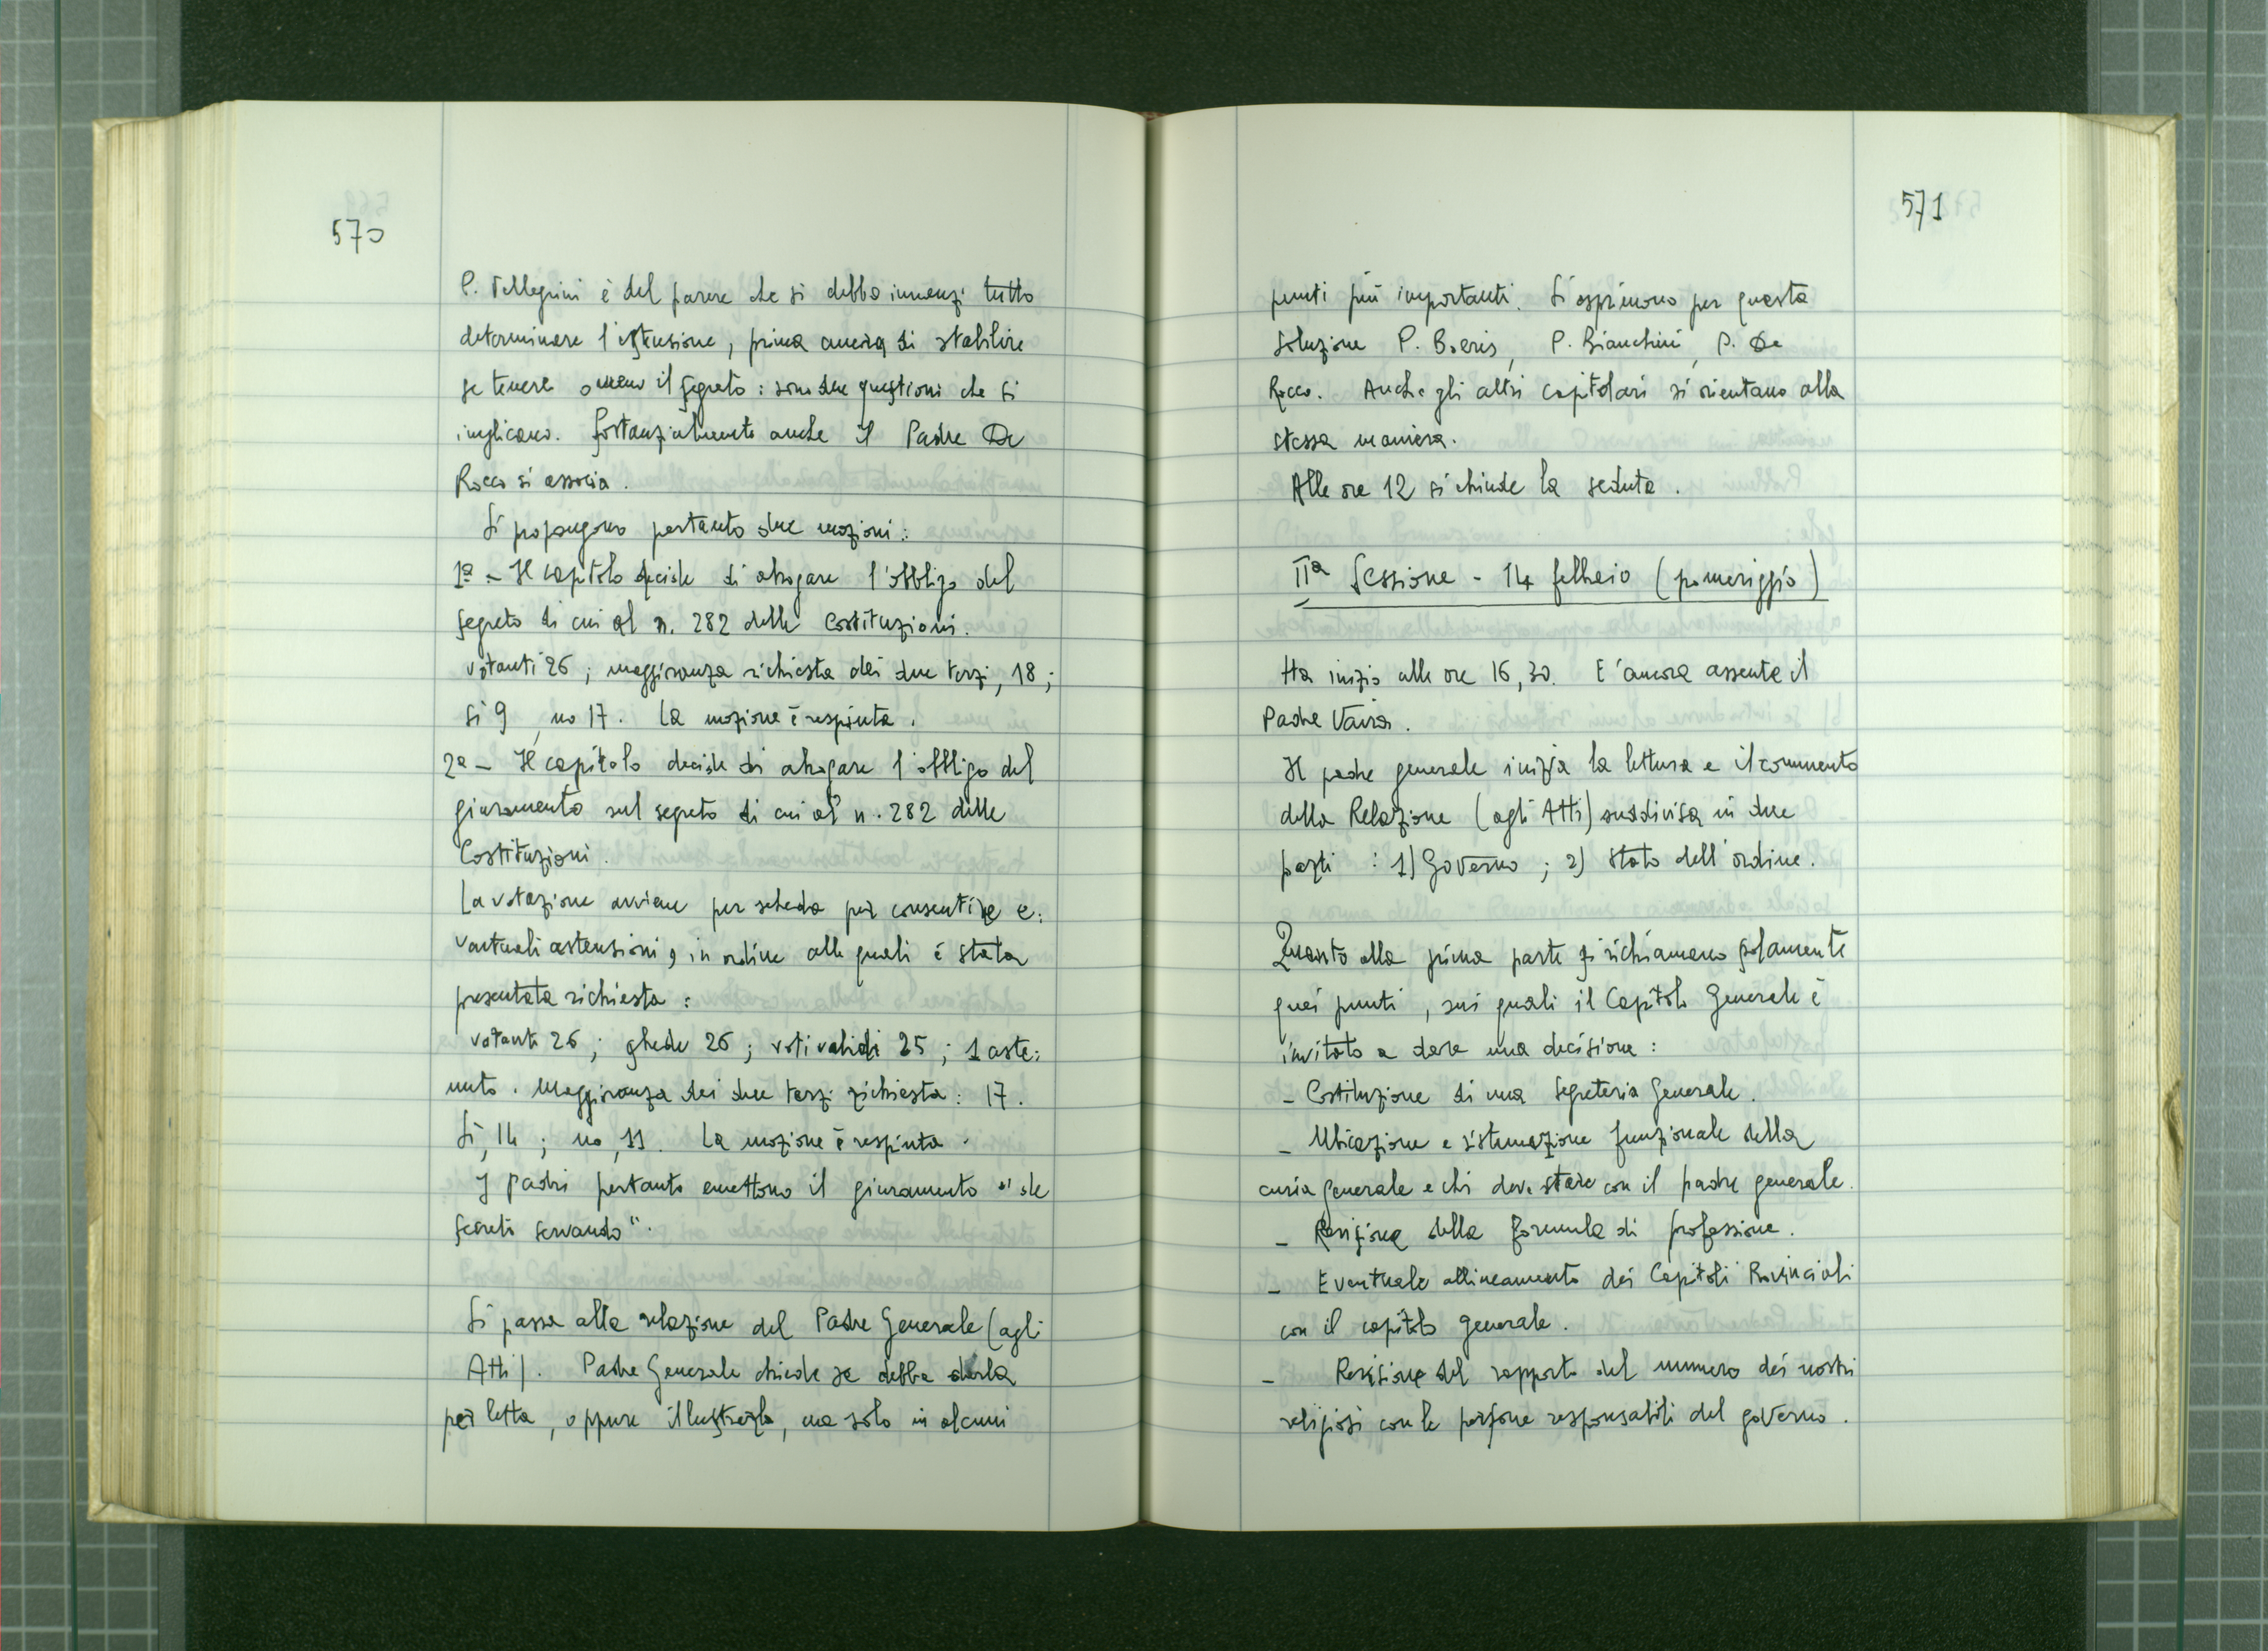 570
P. Pellegrini è del parere che si debba innanzi tutto
determinare l'estensione, prima ancora di stabilire
se tenere o meno il segreto: sono due questioni che si
implicano. Sostanzialmente anche il Padre De
Rocco si associa.
Si propongono pertanto due mozioni:
1ª - Il capitolo decide di abrogare l'obbligo del
segreto di cui al n. 282 delle Costituzioni.
votanti 26; maggioranza richiesta dei due terzi, 18;
sì 9, no 17. La mozione è respinta.
2ª - Il capitolo decide di abrogare l'obbligo del
giuramento sul segreto di cui al n. 282 delle
Costituzioni.
La votazione avviene per scheda per consentire e:
ventuali astensioni, in ordine alle quali è stata
presentata richiesta:
votanti 26; schede 26; voti validi 25; 1 aste:
nuto. Maggioranza dei due terzi richiesta: 17.
Sì, 14; no, 11. La mozione è respinta.
I padri pertanto emettono il giuramento "de
secreto servando".
Si passa alla relazione del Padre Generale (agli
Atti). Padre Generale chiede se debba darla
per letta, oppure illustrarla, ma solo in alcuni
571
punti più importanti. Si esprimono per questa
soluzione P. Boeris, P. Bianchini, P. De
Rocco. Anche gli altri capitolari si orientano alla
stessa maniera.
Alle ore 12 si chiude la seduta.
IIª Sessione - 14 febbraio (pomeriggio)
Ha inizio alle ore 16,30. E' ancora assente il
Padre Vaira.
Il padre generale inizia la lettura e il commento
della Relazione (agli Atti) suddivisa in due
parti: 1) Governo; 2) Stato dell'ordine.
Quanto alla prima parte si richiamano solamente
quei punti, sui quali il Capitolo Generale è
invitato a dare una decisione:
- Costituzione di una Segreteria Generale.
- Ubicazione e sistemazione funzionale della
curia generale e chi deve stare con il padre generale.
- Revisione della formula di professione.
- Eventuale allineamento dei Capitoli Provinciali
con il capitolo generale.
- Revisione del rapporto del numero dei nostri
religiosi con le persone responsabili del governo.